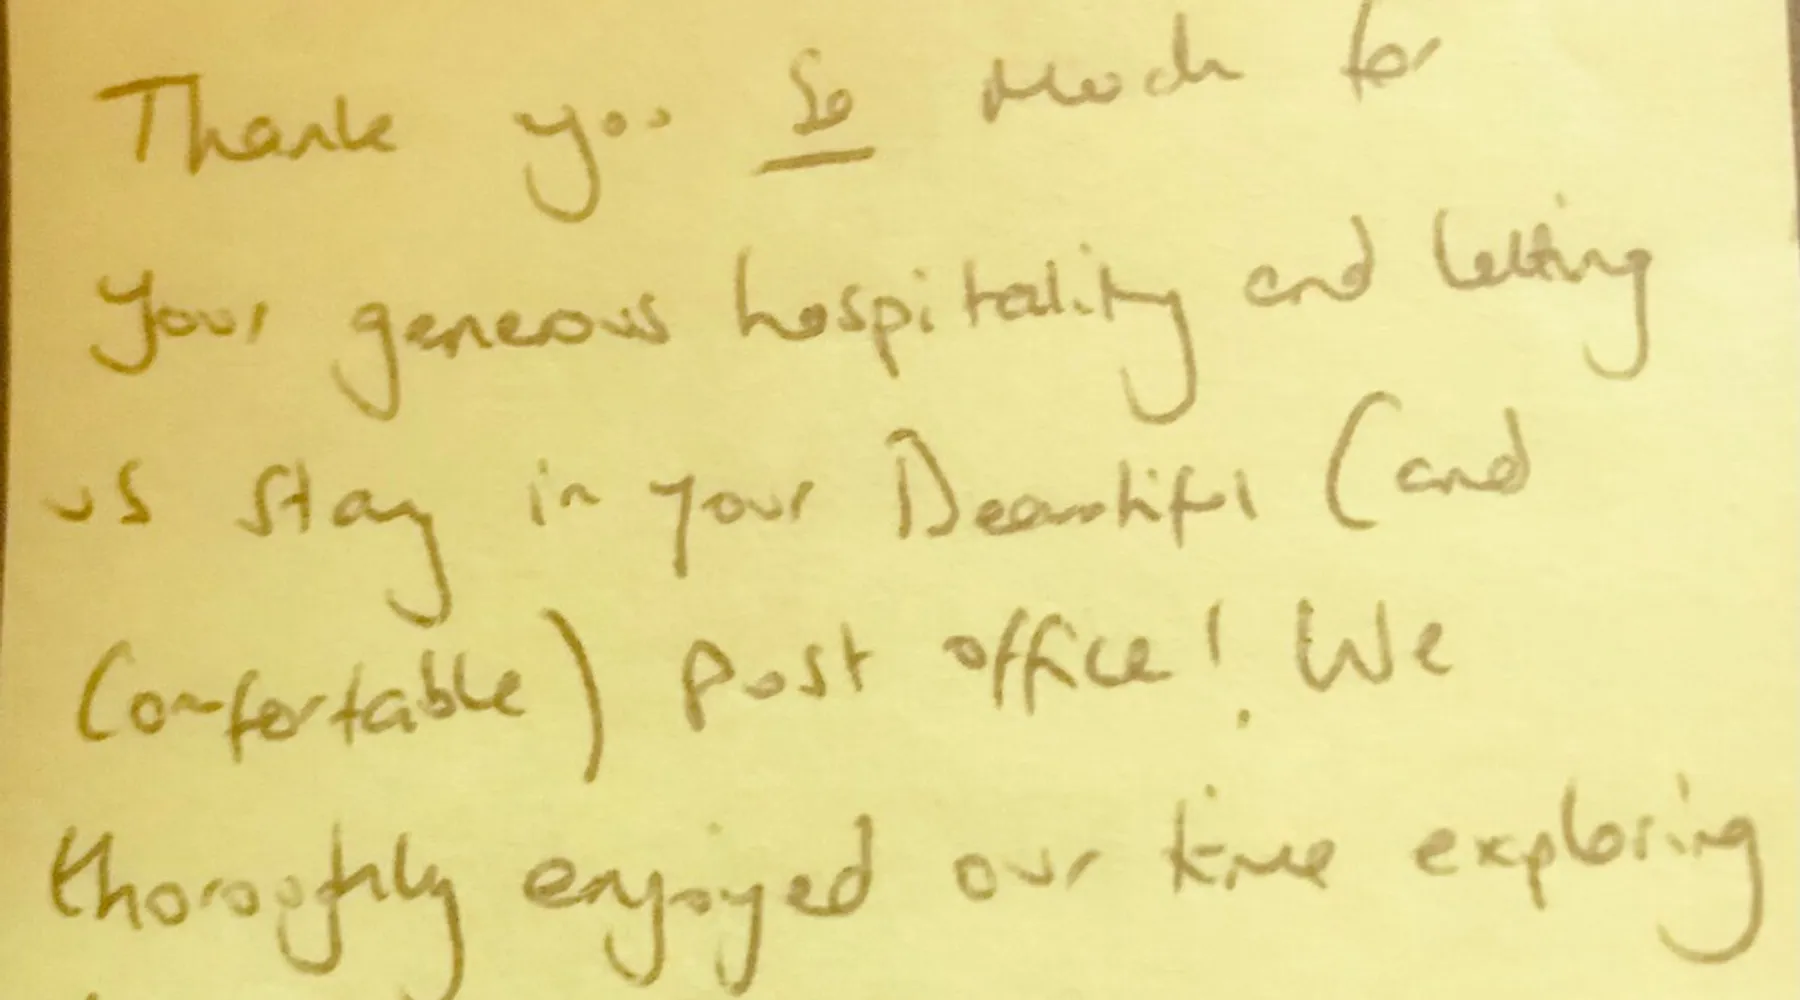 Thank you So much for
your generous hospitality and letting
us stay in your Beautiful (and
Comfortable) Post office! We
thoroughly enjoyed our time exploring